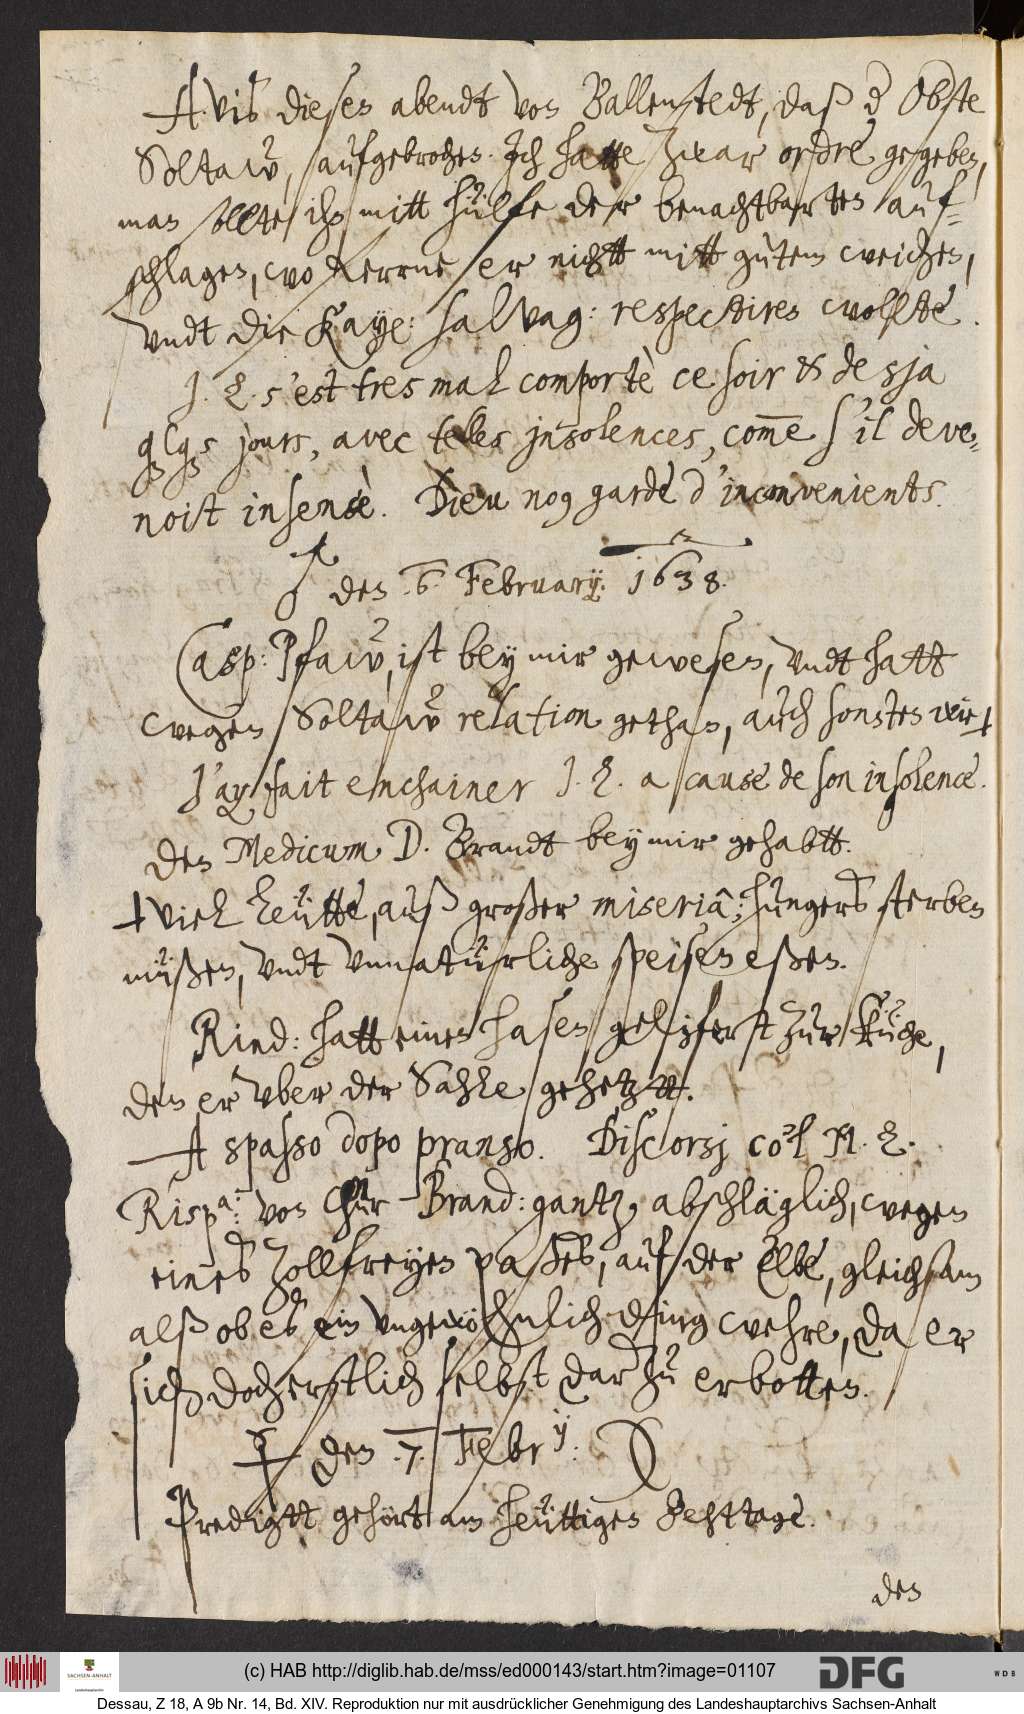 Avis dieses abendt von Ballenstedt, daß d Obste
Soltaw, aufgebrochen. Ich hatte zwar ordre gegeben,
man sollte ihn mitt hülfe der benachtbarten auf¬
schlagen, wo ferrne er nichtt mitt gutem weichen,
vndt die Kaye: salvag: respectiren wollte.
J. L. s'est tres mal comportè ce soir & desja
qlqs jours, avec telles insolences, com̅e s'il deve¬
noist insensè. Dieu nos garde d'inconvenients.
♂ den .6. February. 1638.
Casp: Pfaw, ist bey mir gewesen, vndt hatt
wegen Soltaw relation gethan, auch sonsten wie ☩
J'ay fait enchainer J. L. a cause de son insolence.
Den Medicum D. Brandt bey mir gehabtt.
☩ viel leütte, auß großer miseriâ; hungers sterben
müßen, vndt vnnatürliche speisen eßen.
Rind: hatt einen hasen geliefert zur küche,
den er vber der Sahle gehetztt.
A spasso dopo pranso. Discorsj co'l M. L.
Rispa: von Chur Brand: gantz abschläglich, wegen
eines Zollfreyen paßes, auf der Elbe, gleichsam
alß ob es ein vngewöhnlich ding wehre, da er
sich doch erstlich selbst darzu erbotten.
☿ den .7. Febry: ☽
Predigtt gehört am heüttigen Behttage.
den
(c) HAB http://diglib.hab.de/mss/ed000143/start.htm?image=01107
SACHSEN-ANHALT
DFG
WDB
Dessau, Z 18, A 9b Nr. 14, Bd. XIV. Reproduktion nur mit ausdrücklicher Genehmigung des Landeshauptarchivs Sachsen-Anhalt